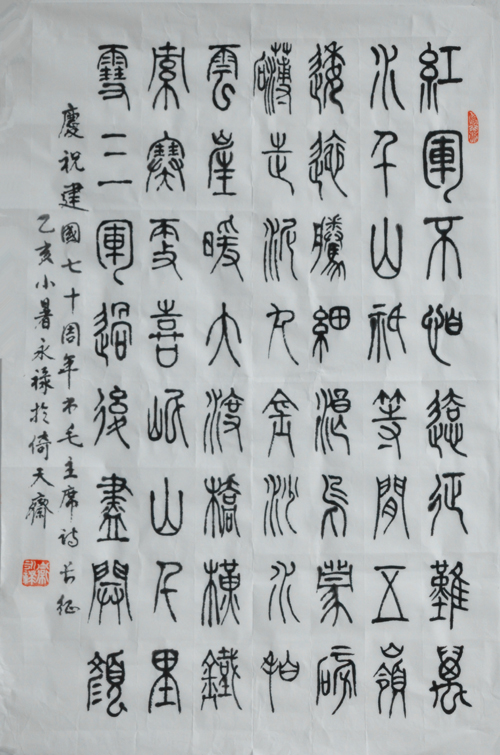 紅軍不怕遠征難萬
水千山祗等閒五嶺
逶迤騰細浪烏蒙磅
礴走泥丸金沙水拍
雲崖暖大渡橋橫鐵
索寒更喜岷山千里
雪三軍過後盡開顏
慶祝建國七十周年书毛主席詩長征
己亥小暑永祿於倚天齋